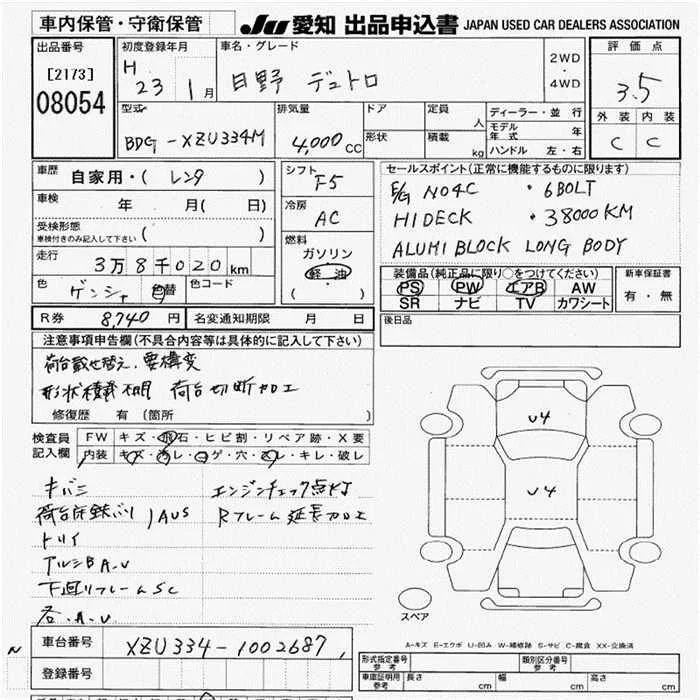 車内保管・守衛保管
JU 愛知 出品申込書 JAPAN USED CAR DEALERS ASSOCIATION
出品番号
[2173]
08054
初度登録年月
H 23 年 1 月
車名・グレード
日野 デュトロ
2WD
・
4WD
評価点
3.5
外装 内装
C C
型式
BDG-XZU334M
排気量
4,000 CC
ドア
形状
定員 人
積載 kg
ディーラー・並行
モデル年式 年
ハンドル 左・右
車歴 自家用・( レンタ )
車検 年 月( 日)
受検形態
車検付きのみ記入して下さい ( )
走行 3万8千020km
色 ゲンシャ 色替 色コード
シフト
F5
冷房
AC
燃料
ガソリン
軽油
( ・ )
セールスポイント(正常に機能するものに限ります)
E/G NO4C ・6BOLT
HIDECK ・38000KM
ALUMI BLOCK LONG BODY
装備品(純正品に限り○をつけてください)
PS PW エアB AW
SR ナビ TV カワシート
新車保証書
有・無
R券 8,740 円 名変通知期限 月 日
後日品
注意事項申告欄(不具合内容等は具体的に記入して下さい)
荷台載せ替え、要構変
形状積載不明 荷台切断加工
修復歴 有 (箇所 )
検査員
記入欄
FW キズ・飛石・ヒビ割・リペア跡・X要
内装 キズ・汚レ・コゲ・穴・スレ・キレ・破レ
キバミ エンジンチェック点灯
荷台床鉄バリ JAUS Rフレーム延長加工
トリイ
アルミBA-U
下廻リフレームSC
各.A.U
U4
U4
スペア
A-キズ E-エクボ U-凹み W-補修跡 S-サビ C-腐食 XX-交換済
N
車台番号 XZU334-1002687
登録番号
形式指定番号
参考
類別区分番号
参考
車庫証明用
参考
長さ cm 幅 cm 高さ cm